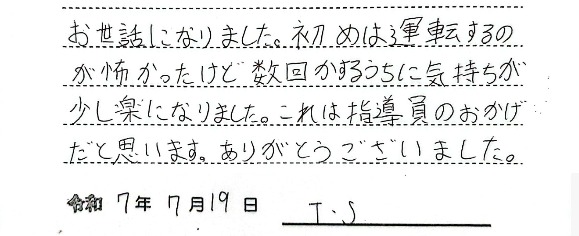 お世話になりました。初めは運転するの
が怖かったけど数回かするうちに気持ちが
少し楽になりました。これは指導員のおかげ
だと思います。ありがとうございました。
令和 7年 7月19日 T.S